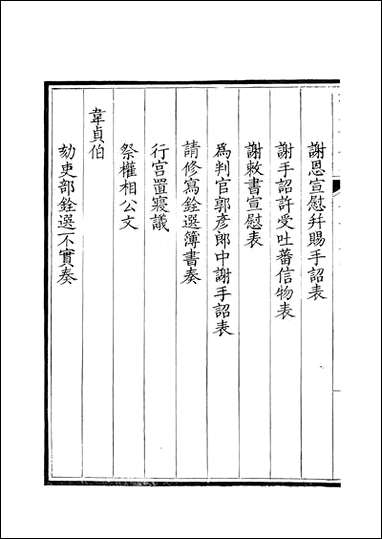 謝恩宣慰幷賜手詔表
謝手詔許受吐蕃信物表
謝敕書宣慰表
爲判官郭彥郎中謝手詔表
請修寫銓選簿書奏
行宫置寢議
祭權相公文
韋貞伯
劾吏部銓選不實奏